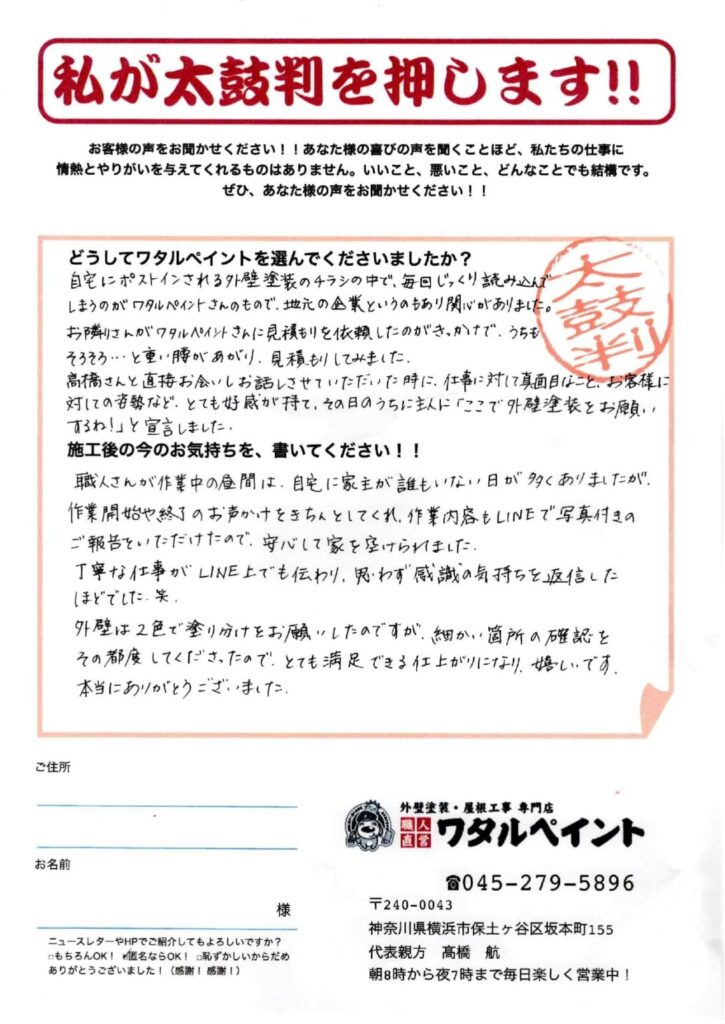 私が太鼓判を押します!!
お客様の声をお聞かせください！！あなた様の喜びの声を聞くことほど、私たちの仕事に
情熱とやりがいを与えてくれるものはありません。いいこと、悪いこと、どんなことでも結構です。
ぜひ、あなた様の声をお聞かせください！！
太鼓判
どうしてワタルペイントを選んでくださいましたか？
自宅にポストインされる外壁塗装のチラシの中で、毎回じっくり読み込んで
しまうのがワタルペイントさんのもので、地元の企業というのもあり関心がありました。
お隣りさんがワタルペイントさんに見積もりを依頼したのがきっかけで、うちも
そろそろ…と重い腰があがり、見積もりしてみました。
高橋さんと直接お会いしお話しさせていただいた時に、仕事に対して真面目なこと、お客様に
対しての姿勢など、とても好感が持て、その日のうちに主人に「ここで外壁塗装をお願い
するね!」と宣言しました。
施工後の今のお気持ちを、書いてください！！
職人さんが作業中の昼間は、自宅に家主が誰もいない日が多くありましたが、
作業開始や終了のお声かけをきちんとしてくれ、作業内容もLINEで写真付きの
ご報告をいただけたので、安心して家を空けられました。
丁寧な仕事がLINE上でも伝わり、思わず感謝の気持ちを返信した
ほどでした。笑
外壁は2色で塗り分けをお願いしたのですが、細かい箇所の確認を
その都度してくださったので、とても満足できる仕上がりになり、嬉しいです。
本当にありがとうございました。
ご住所
お名前
様
ニュースレターやHPでご紹介してもよろしいですか？
□もちろんOK！ ☑匿名ならOK！ □恥ずかしいからだめ
ありがとうございました！（感謝！感謝！）
外壁塗装・屋根工事 専門店
職人直営 ワタルペイント
☎045-279-5896
〒240-0043
神奈川県横浜市保土ヶ谷区坂本町155
代表親方 髙橋 航
朝8時から夜7時まで毎日楽しく営業中！